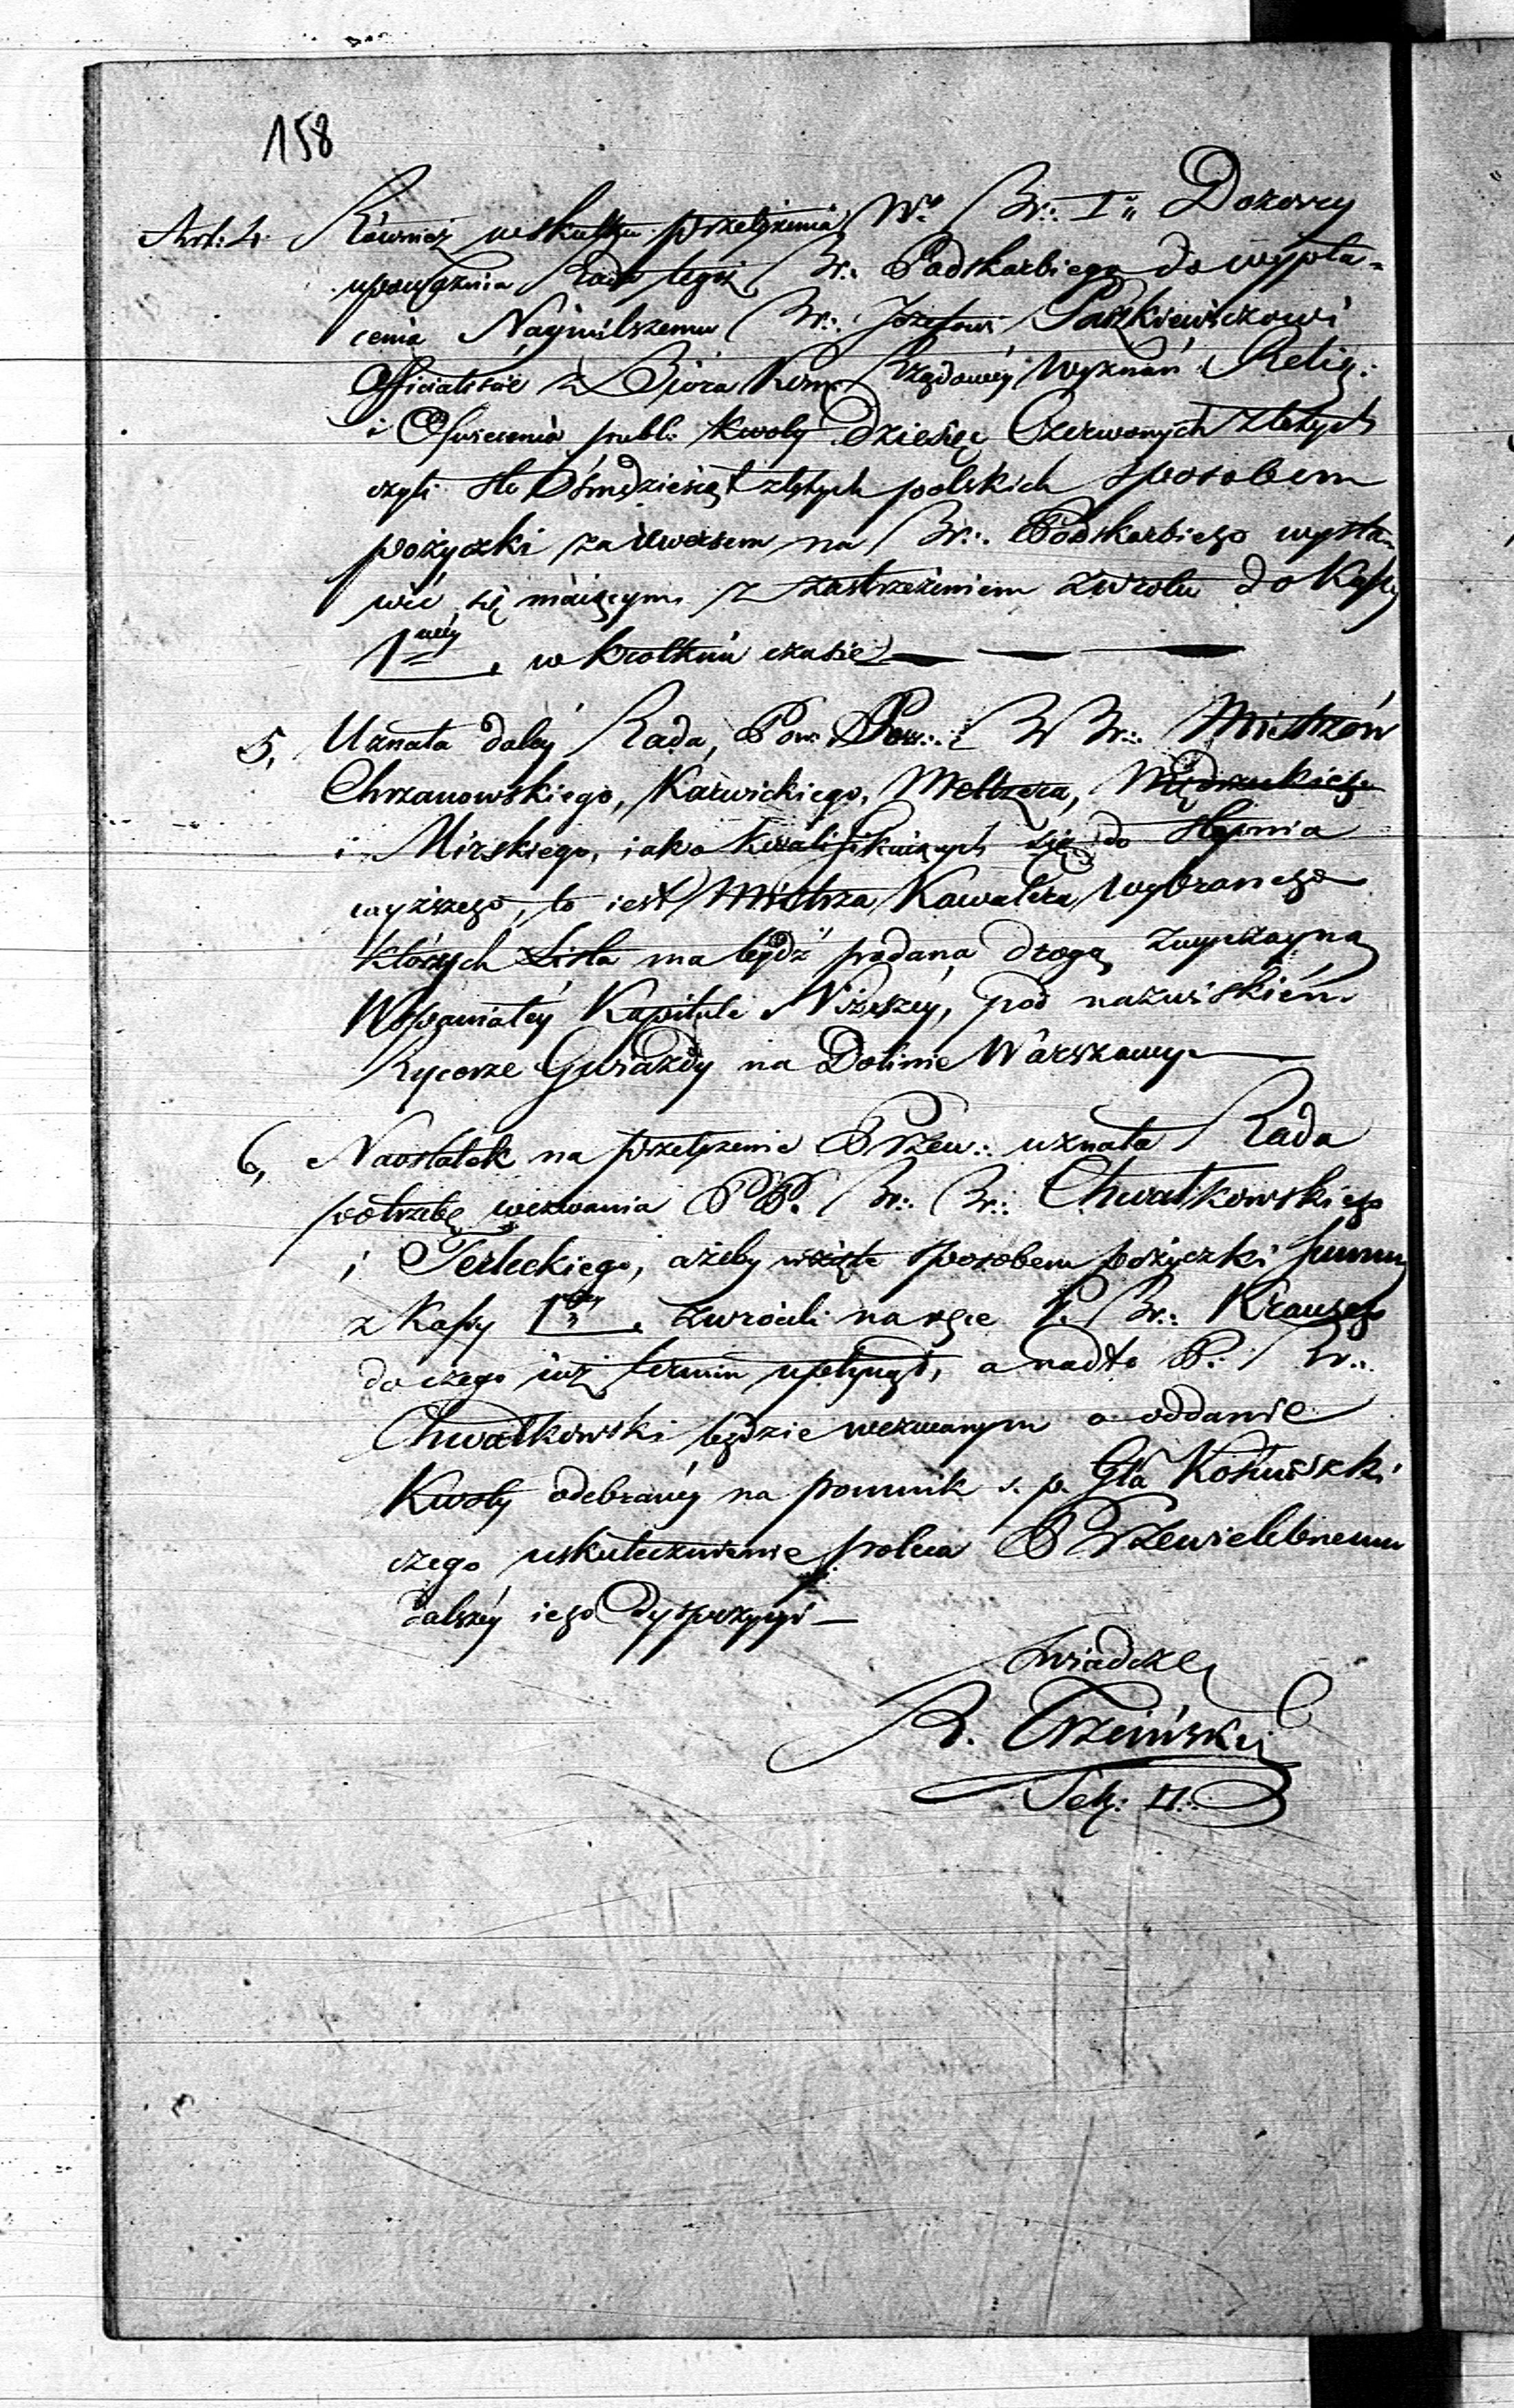 158
Art: 4. Również w skutku przełożenia Wo Br∴ I. Dozorcy
upoważnia Rada tegoż Br∴ Podskarbiego do wypła-
cenia Naymilszemu Br∴ Jozefowi Paszkiewiczowi
Officialiście z Biora Kom: Rządowéy Wyznań Relig:
i Oświecenia publ: kwoty Dziesięć Czerwonych Złotych
czyli sto Ośmdziesiąt złotych polskich sposobem
pożyczki za rewersem na Br∴ Podskarbiego wysta-
wić się maiącym z zastrzeżeniem zwrotu do Kassy
w krotkim czasie
5, Uznała daléy Rada, Pow: Pow: BBr∴ Mistrzów
Chrzanowskiego, Karwickiego, Meltzera,
i Mirskiego, iako kwalifikuiących się do stopnia
wyższego, to iest Mistrza Kawalera Wybranego
których Lista ma bydź podana drogą zwyczayną
Wspaniałéy Kapitule Niższéy, pod nazwiskiém
Rycerze Gwiazdy na Dolinie Warszawy
6, Naostatek na przełożenie Przew∴ uznała Rada
potrzebę wezwania PP. Br∴ Br∴ Chwalkowskiego
i Terleckiego, ażeby wziętą sposobem pożyczki summę
z Kassy zwrócili na ręce P. Br∴ Krauzego
do czego iuż termin upłynął, a nadto P. Br∴
Chwalkowski będzie wezwanym o oddanie
Kwoty odebranéy na pomnik ś. p. Gła Kościuszki
czego uskutecznienie poleca Przewielebnemu
dalszéy iego Dyspozycyi
Świadczę
R. Trzciński
Sek: II∴